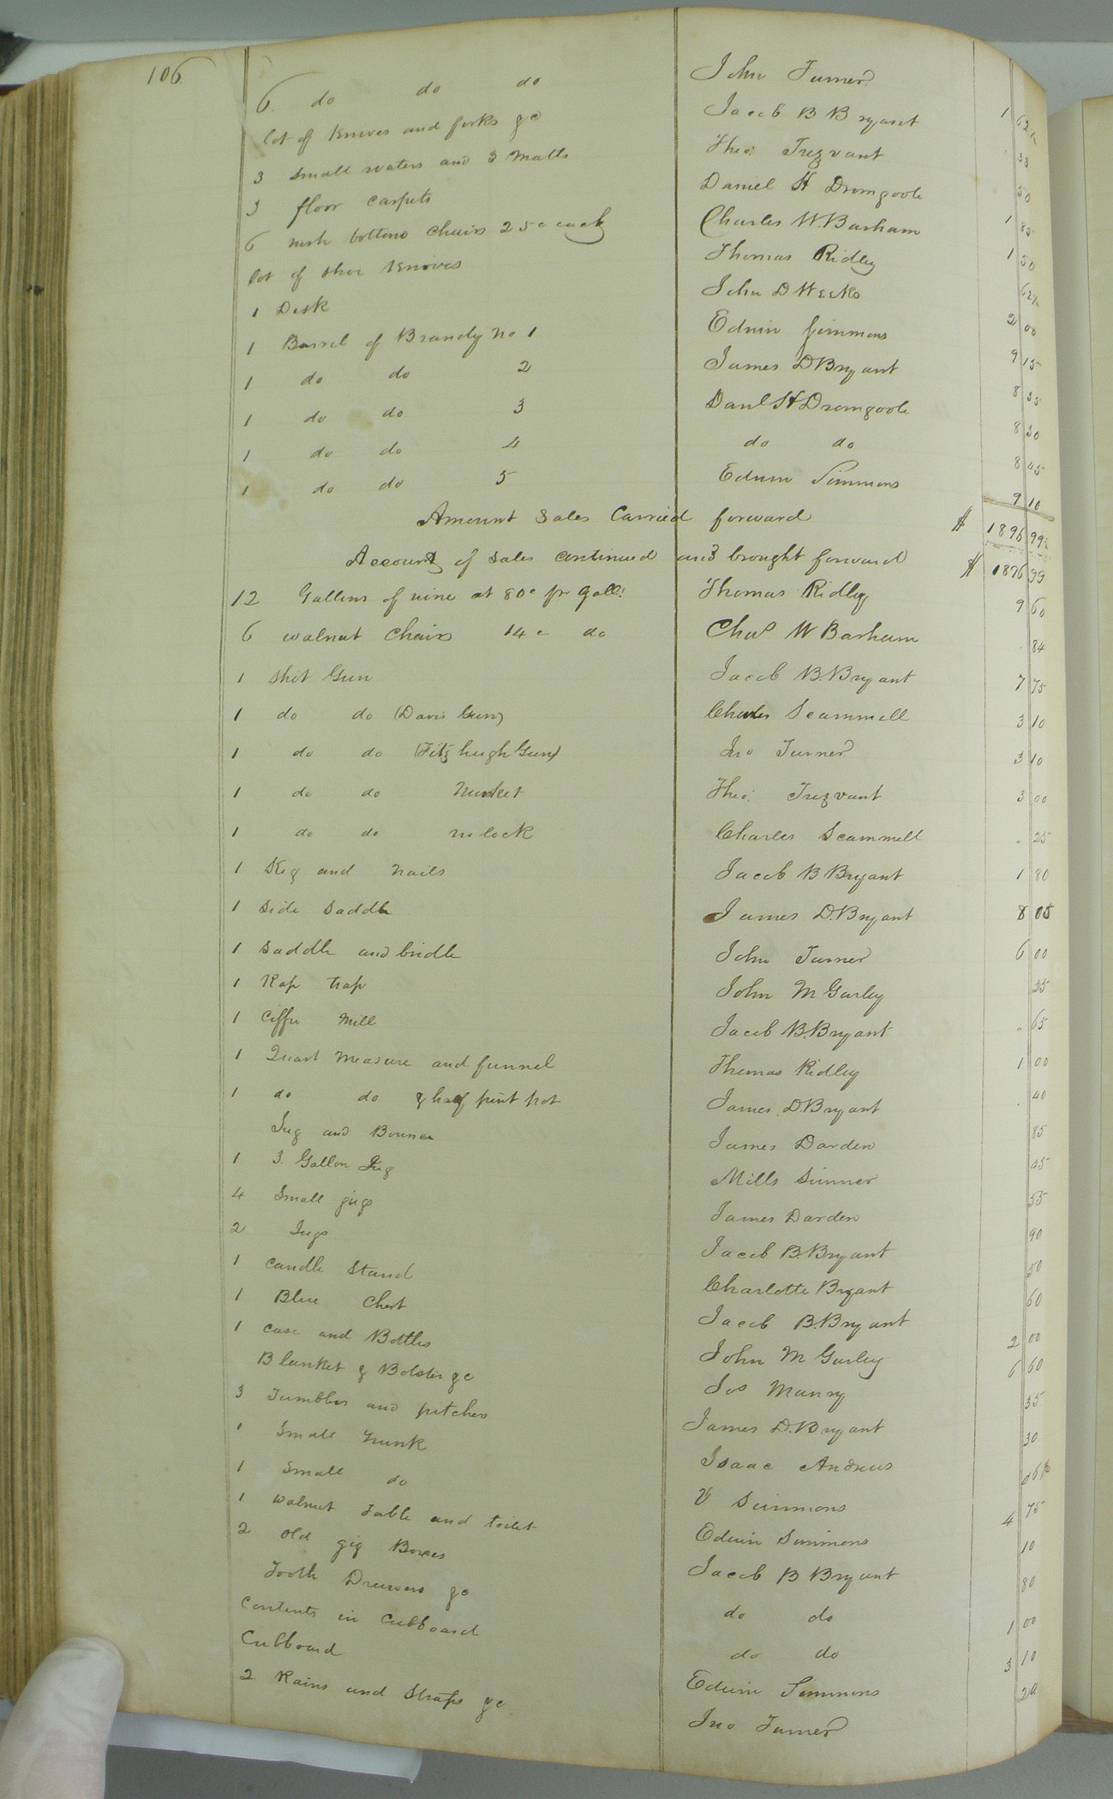 106
6 do do do John Turner
lot of Knives and forks &c Jacob B Bryant 1 62½
3 Small waters and 3 Matts Theo: Trezvant 38
3 floor carpets Daniel H Dromgoole 50
6 rush bottom chairs 25c each Charles W. Barham 1 85
lot of shoe Knives Thomas Ridley 1 50
1 Desk John D Weeks 62½
1 Barrel of Brandy No 1 Edwin Simmons 2 00
1 do do 2 James D Bryant 9 15
1 do do 3 Danl H Dromgoole 8 35
1 do do 4 do do 8 30
1 do do 5 Edwin Simmons 8 45
9 10
Amount Sales Carried forward $ 1896 99
Account of Sales continued and brought forward $ 1896 99
12 Gallons of wine at 80c pr gall: Thomas Ridley 9 60
6 walnut Chairs 14c do Chas W Barham 84
1 Shot Gun Jacob B. Bryant 7 75
1 do do (Davis Gun) Charles Scammell 3 10
1 do do (Fitzhugh Gun) Jno Turner 3 10
1 do do Musket Theo: Trezvant 3 00
1 do do no lock Charles Scammell 25
1 Keg and Nails Jacob B Bryant 1 80
1 Side Saddle James D. Bryant 8 05
1 Saddle and bridle John Turner 6 00
1 Rap trap John M Gurley 25
1 Coffee Mill Jacob B. Bryant 65
1 Quart Measure and funnel Thomas Ridley 1 00
1 do do & half pint pot James D. Bryant 40
Jug and James Darden 85
1 3 Gallon Jug Mills Sumner 45
4 Small jugs James Darden 55
2 Jugs Jacob B. Bryant 90
1 Candle Stand Charlotte Bryant 50
1 Blue Chest Jacob B. Bryant 60
1 case and Bottles John M Gurley 2 00
Blanket & Bolster &c Jos Manry 6 60
3 Tumblers and pitchers James D. Bryant 35
1 Small trunk Isaac Andrews 30
1 Small do V Simmons
1 walnut Table and toilet Edwin Simmons 4 75
2 old gig Boxes Jacob B Bryant 10
Tooth Drawers &c do do 80
Contents in Cubboard do do 1 00
Cubboard Edwin Simmons 3 10
2 Rains and Straps &c Jno Turner 20